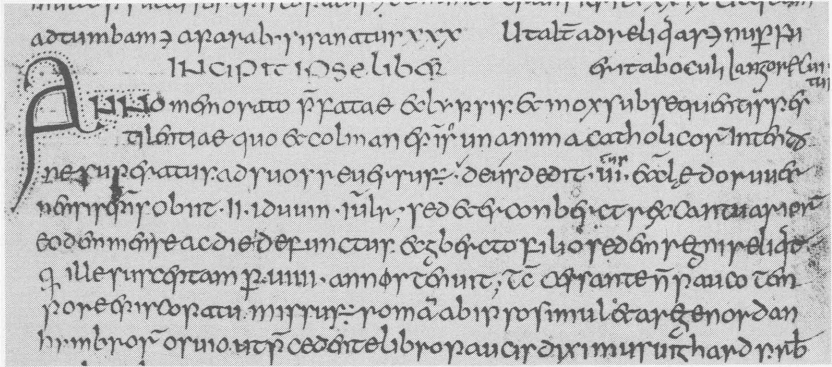 ad tumbam ɔ a paralysi sanatur xxx Ut alt̄ ad reliq̄as ɔ nuper fu
INCIPIT IPSE LIBER erit ab oculi langore cura tus
ANNO memorato p̄fatae eclypsis & mox subsequentis pes
tilentiae quo & colman ep̄s unanima catholicor̄ intentio
ne superatus ad suos reuersus÷ deusdedit ui eccl̄ę doruuer
nensis ep̄s obiit ii iduum iūl sed & erconberct rex cantuarior̄
eodem mense ac die defunctus ecgbercto filio sedem regni reliq̄t
q̄ ille susceptam p̄ uiiii annos tenuit; tc̄ cessante n̄ pauco tem
pore episcopatu missus÷ romā ab ipso simul & a rege nordan
hymbror̄ osuio ut p̄cedente libro paucis diximus uighard prb̄